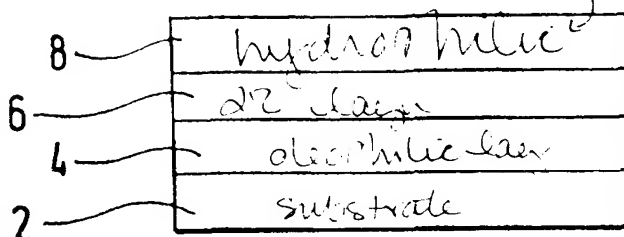 8 hydrophilic
6 layer
4 oleophilic layer
2 substrate